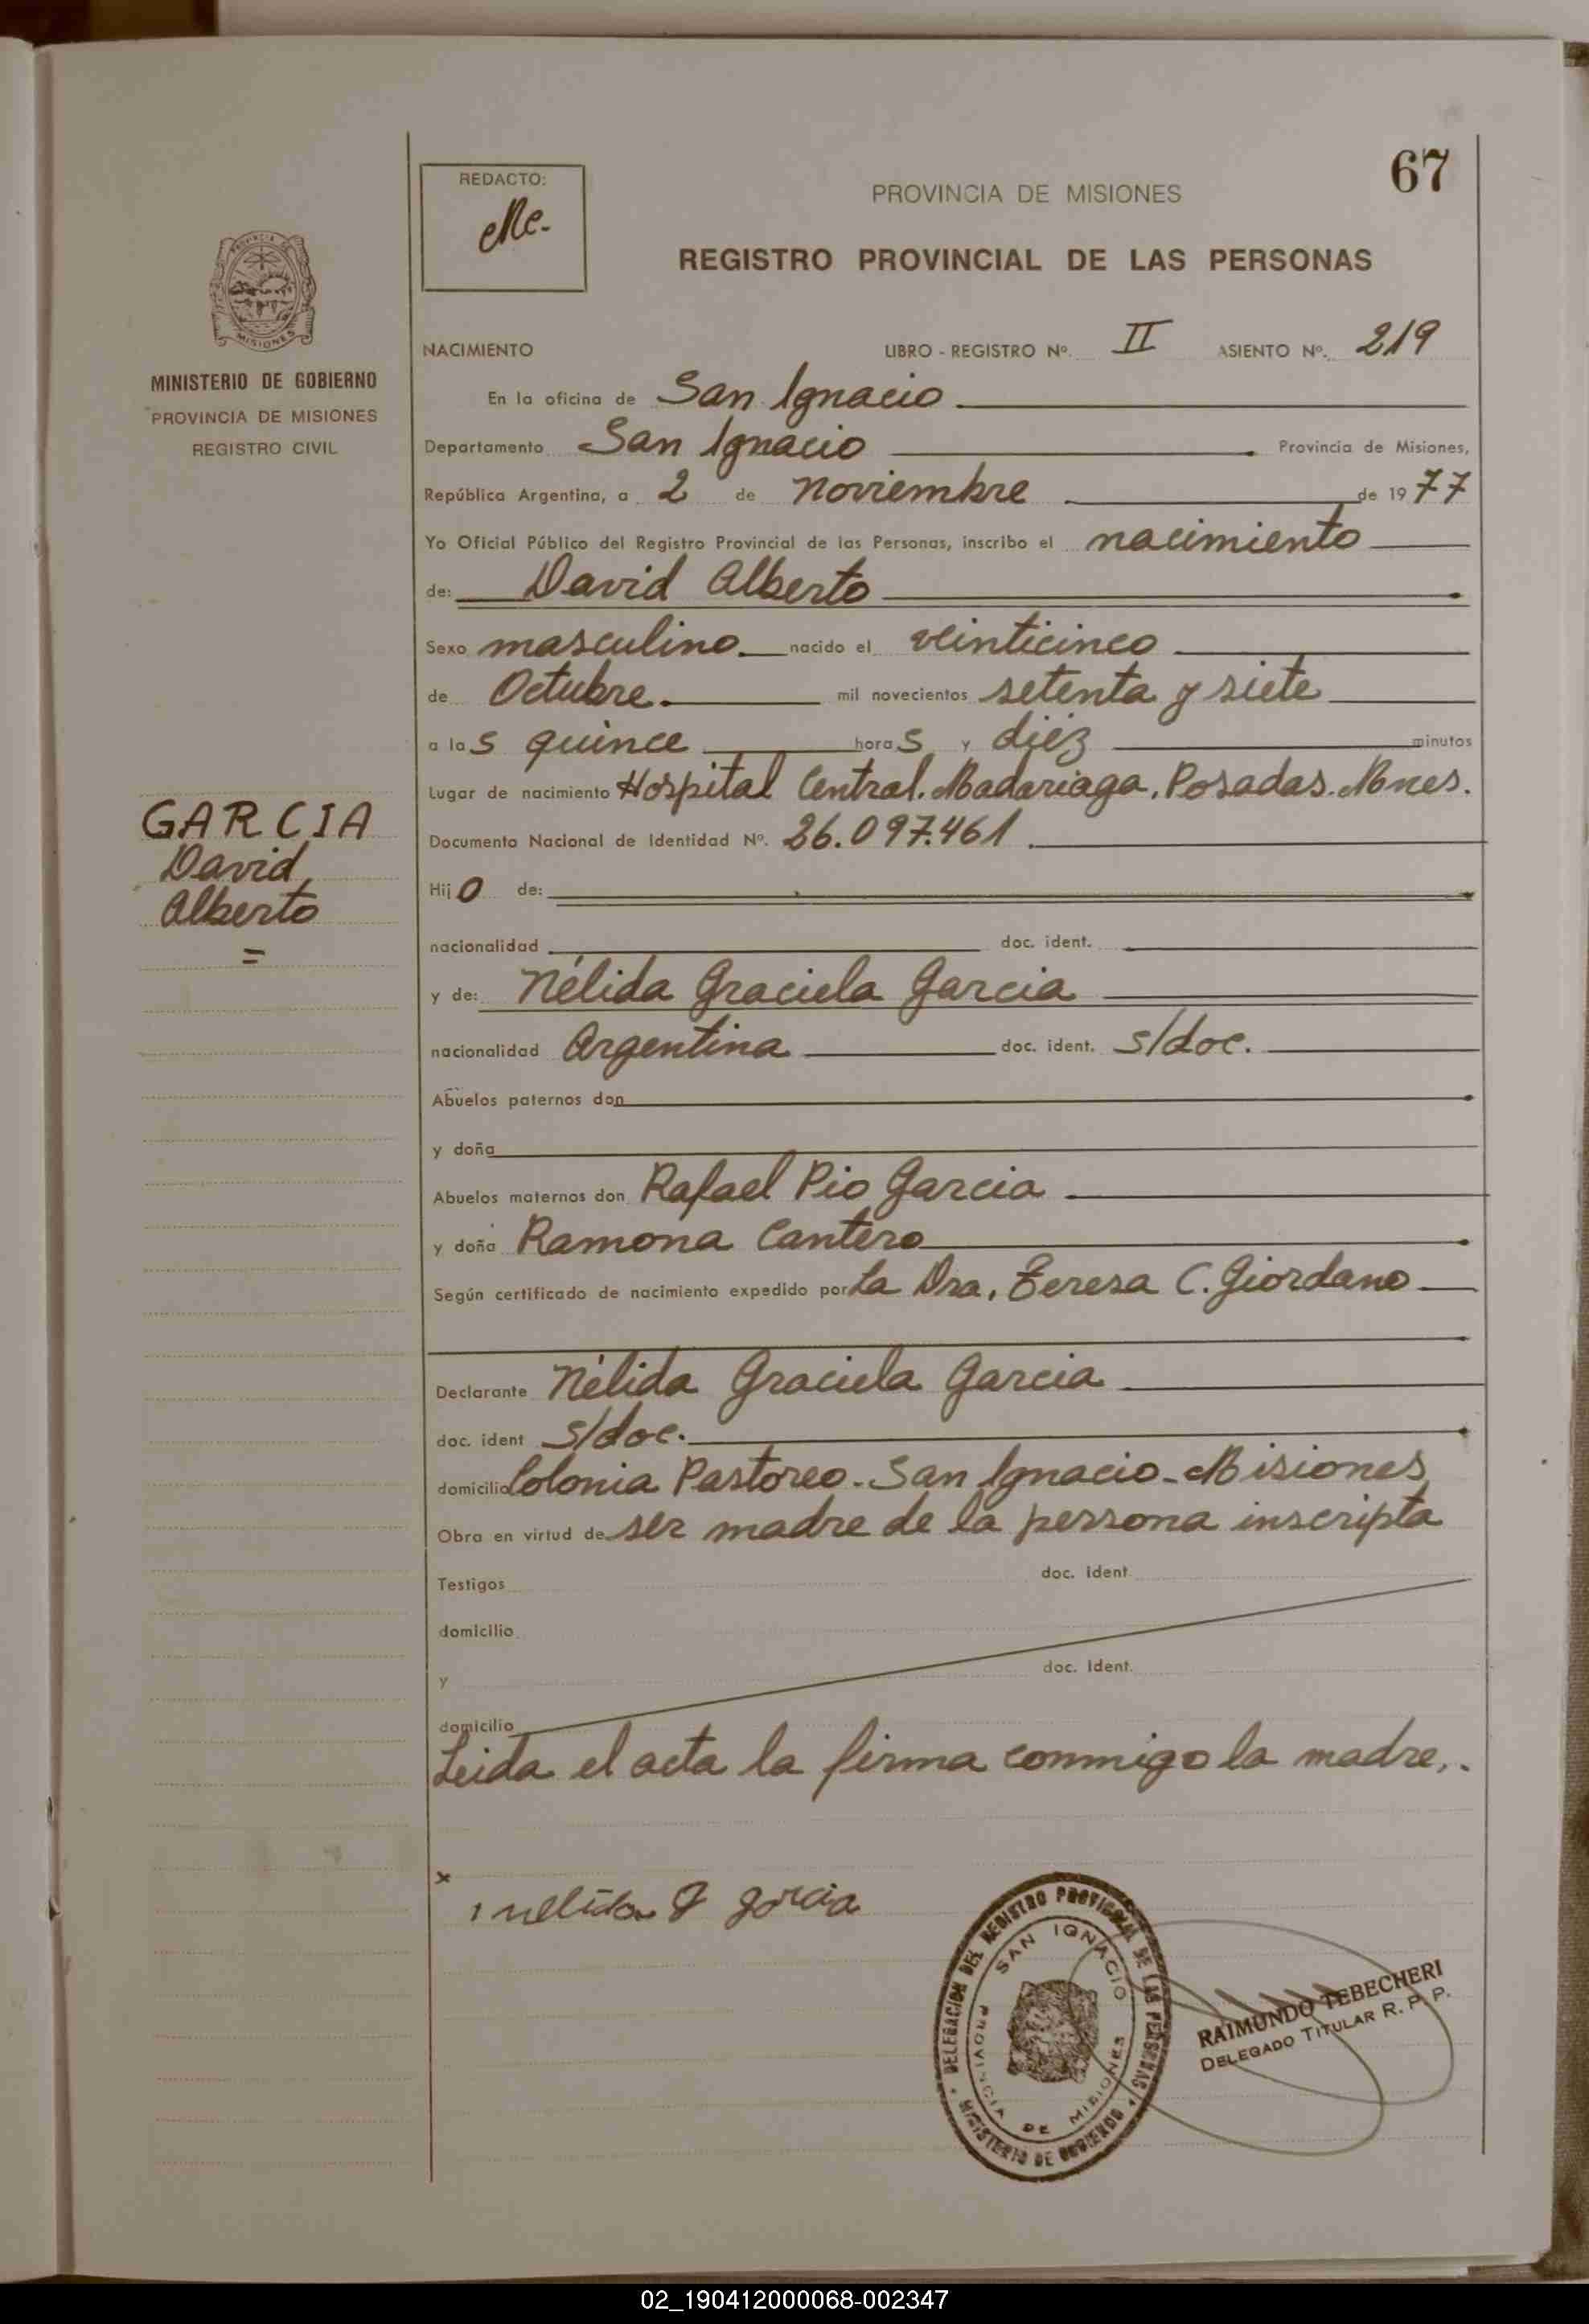 67
REDACTO:
PROVINCIA DE MISIONES
REGISTRO PROVINCIAL DE LAS PERSONAS
MISIONES
MINISTERIO DE GOBIERNO
PROVINCIA DE MISIONES
REGISTRO CIVIL
NACIMIENTO LIBRO - REGISTRO Nº. II ASIENTO Nº. 219
En la oficina de San Ignacio
Departamento San Ignacio Provincia de Misiones,
República Argentina, a 2 de noviembre de 1977
Yo Oficial Público del Registro Provincial de las Personas, inscribo el nacimiento
de: David Alberto
Sexo masculino nacido el veinticinco
de Octubre. mil novecientos setenta y siete
a las quince horas y diéz minutos
Lugar de nacimiento Hospital Central. Madariaga, Posadas. Mnes.
GARCIA
David
Alberto
=
Documento Nacional de Identidad Nº. 26.097.461
Hijo de:
nacionalidad doc. ident.
y de: Nélida Graciela Garcia
nacionalidad Argentina doc. ident. s/doc.
Abuelos paternos don
y doña
Abuelos maternos don Rafael Pio Garcia
y doña Ramona Cantero
Según certificado de nacimiento expedido por La Dra, Teresa C. Giordano
Declarante Nélida Graciela Garcia
doc. ident s/doc.
domicilio Colonia Pastoreo - San Ignacio - Misiones
Obra en virtud de ser madre de la persona inscripta
Testigos doc. ident.
domicilio
y doc. ident.
domicilio
Leida el acta la firma conmigo la madre,.
x
nelida G garcia
DELEGACION DEL REGISTRO PROVINCIAL DE LAS PERSONAS
MINISTERIO DE GOBIERNO
SAN IGNACIO
PROVINCIA DE MISIONES
RAIMUNDO TEBECHERI
DELEGADO TITULAR R. P. P.
02_190412000068-002347